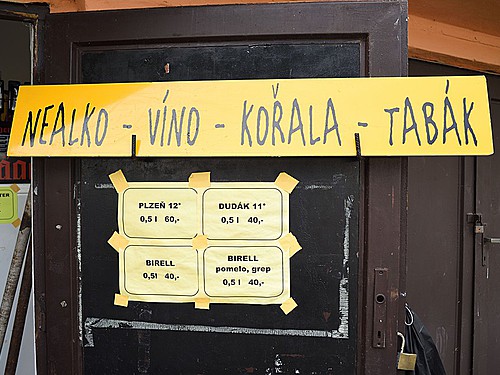 NEALKO - VÍNO - KOŘALA - TABÁK
PLZEŇ 12°
0,5 l 60,-
DUDÁK 11°
0,5 l 40,-
BIRELL
0,5l 40,-
BIRELL
pomelo, grep
0,5 l 40,-